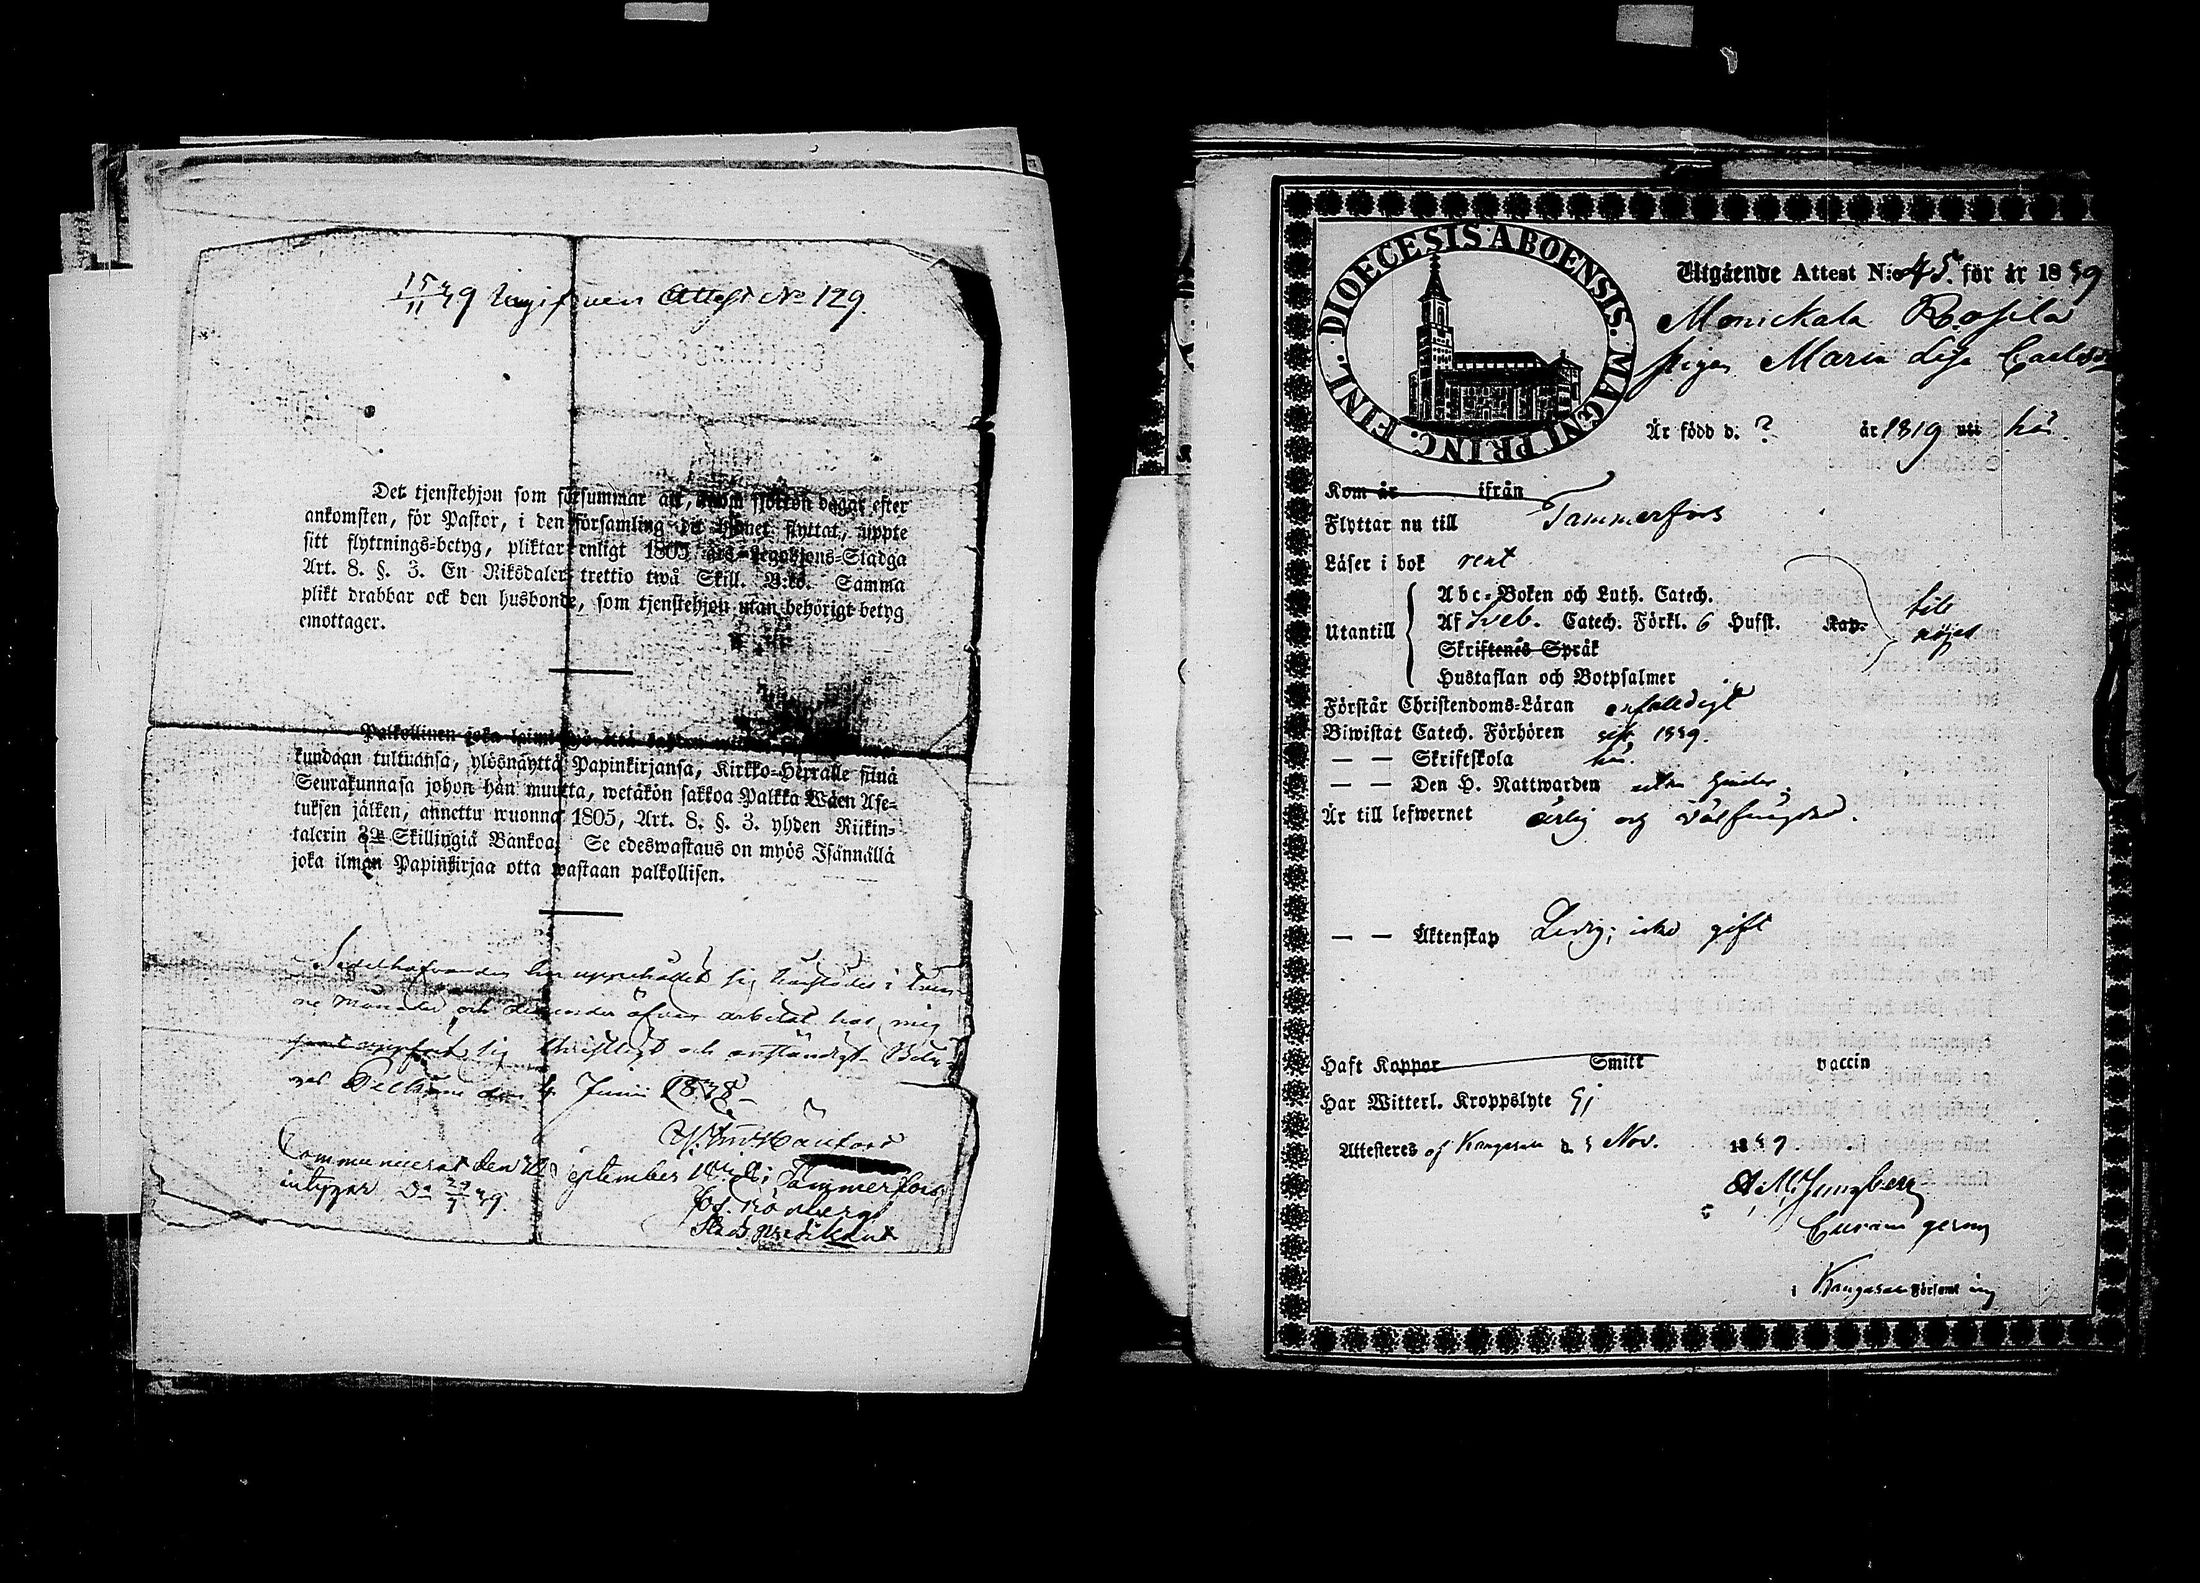 15/11 39 Utgifven Attest No 129.
Det tjenstehjon som försummar att, inom fjorton dagar efter
ankomsten, för Pastor, i den församling dit hjonet flyttat, uppte
sitt flyttnings-betyg, pliktar enligt 1805 års Legohjons-Stadga
Art. 8. §. 3. En Riksdaler trettio twå Skill. B:ko. Samma
plikt drabbar ock den husbonde, som tjenstehjon utan behörigt betyg
emottager.
Palkollinen joka
kundaan tultuansa, ylösnäyttä Papinkirjansa, Kirkko-Herralle siinä
Seurakunnasa johon hän muutta, wetäkön sakkoa Palkka Wäen Ase-
tuksen jälken, annettu wuonna 1805, Art. 8. §. 3. yhden Riikin-
talerin 32 Skillingiä Bankoa. Se edeswastaus on myös Isännällä
joka ilman Papinkirjaa otta wastaan palkollisen.
Sedelhafvanden har uppehållit sig härstädes i
ne månader och derunder äfven arbetat hos mig
samt uppfört sig christligt och anständigt
den 4 Junii 1838
Communicerat den September i Tammerfors,
intygar
Stads predikant
DIOECESIS ABOENSIS. MAGNI PRINC. FINL.
Utgående Attest N:o 45. för år 1839
Monickala Rosila
pigan Maria Lisa Carlsd
Är född d. ? år 1819 uti här.
Kom år ifrån
Flyttar nu till Tammerfors
Läser i bok rent
Abc-Boken och Luth. Catech.
Utantill Af Sveb. Catech. Förkl. 6 Hufst. Kap. till nöjes
Skriftenes Språk
Hustaflan och Botpsalmer
Förstår Christendoms-Läran enfalldigt
Biwistat Catech. Förhören 1839.
— — Skriftskola här.
— — Den H. Nattwarden utan hinder.
Är till lefwernet ärlig och välfrägdad.
— — Äktenskap Ledig; icke gift
Haft Koppor Smitt vaccin
Har Witterl. Kroppslyte Ej
Attesteres af Kangasala d. 5 Nov. 1839
A. M. Ljungberg
Curam gerens
i Kangasala Församl ing